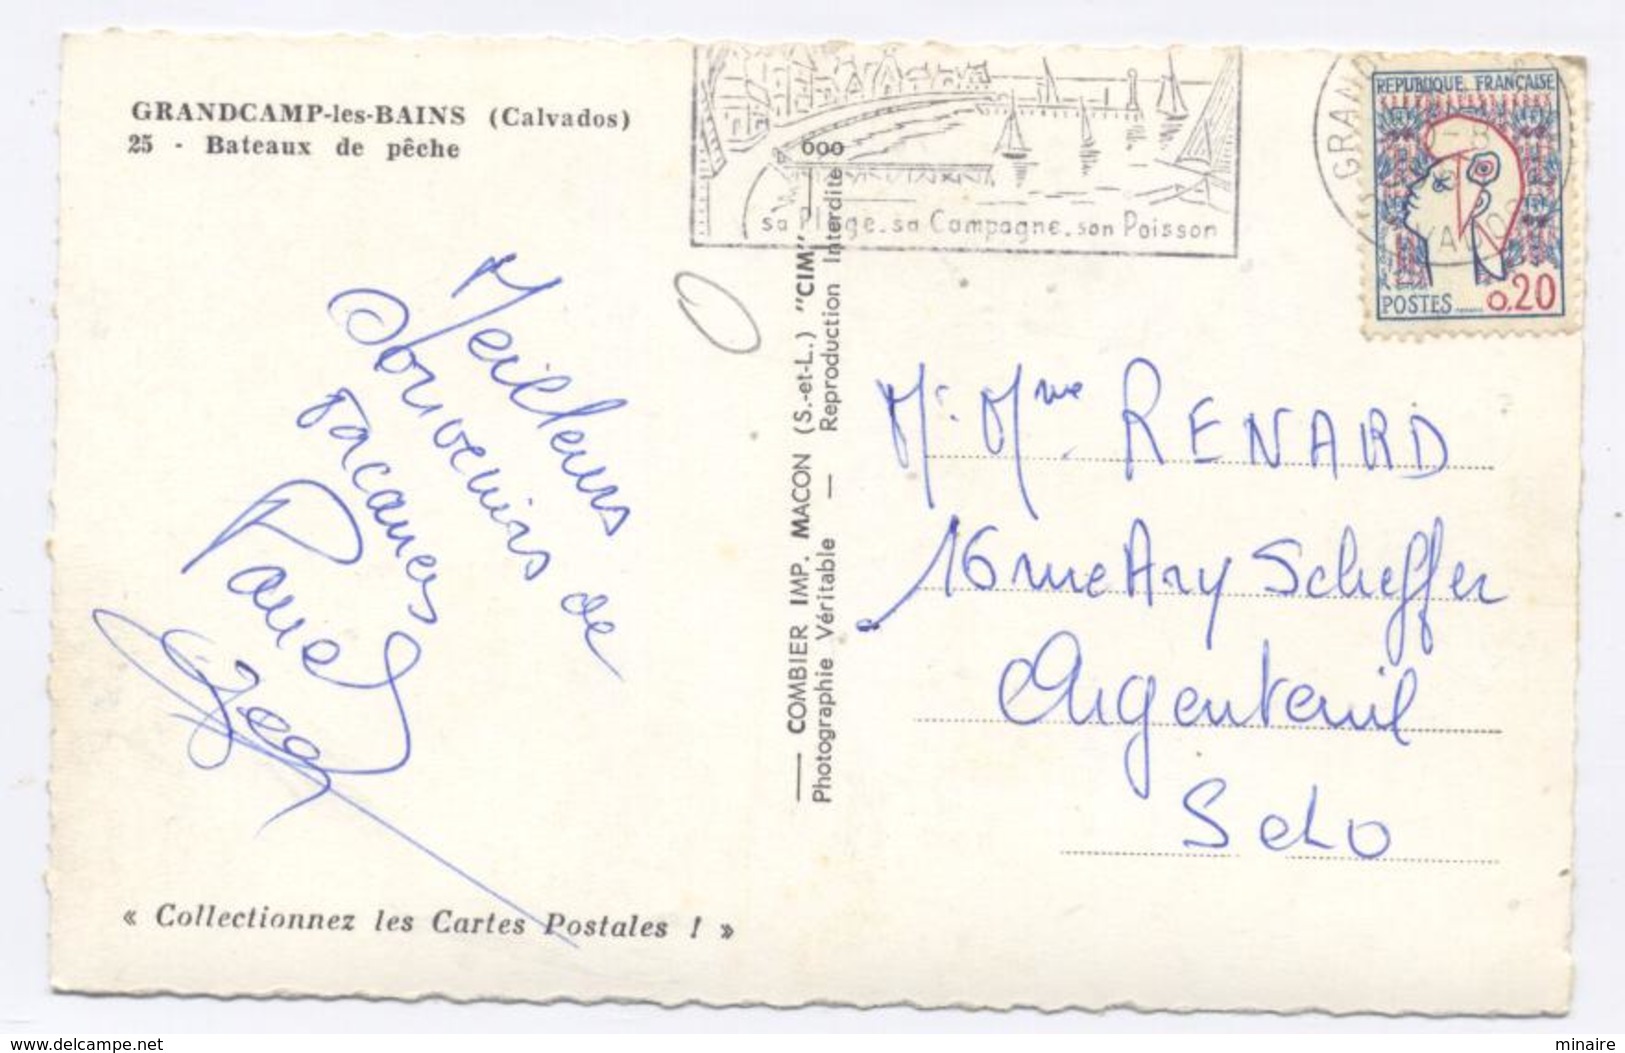 GRANDCAMP-les-BAINS (Calvados)
25 - Bateaux de pêche
sa Plage. sa Campagne. son Poisson
REPUBLIQUE FRANÇAISE
POSTES
0,20
Meilleurs
Souvenirs de
vacances
« Collectionnez les Cartes Postales ! »
— COMBIER IMP. MACON (S.-et-L.) "CIM"
Photographie Véritable — Reproduction Interdite
Mr. Mme RENARD
16 rue Ary Scheffer
Argenteuil
S et O
www.delcampe.net
minaire